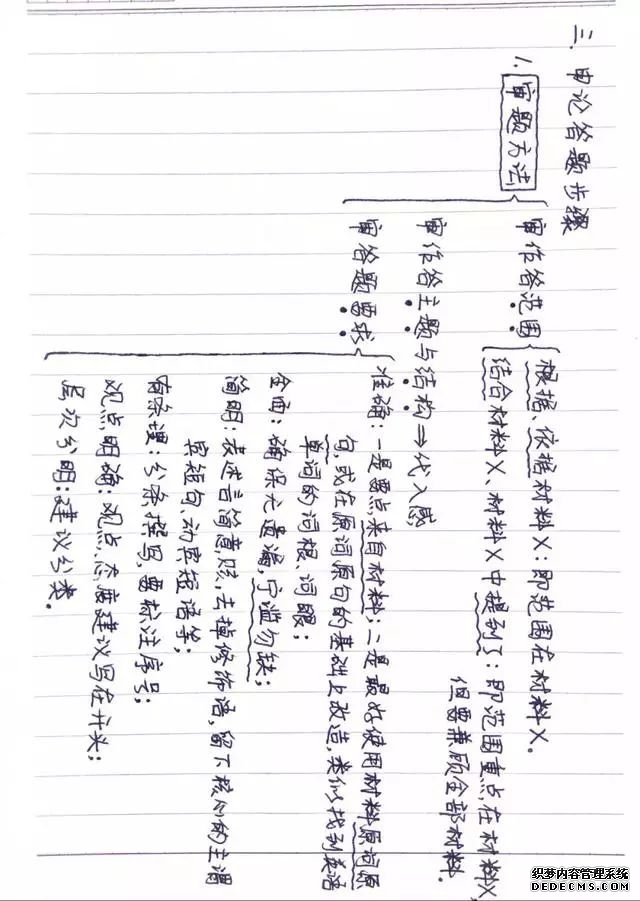 三.申论答题步骤
1.审题方法
审作答范围
根据、依据材料X：即范围在材料X。
结合材料X、材料X中提到了：即范围重点在材料X，
但要兼顾全部材料.
审作答主题与结构⇒代入感
审答题要求
准确：一是要点来自材料；二是最好使用材料原词原
句，或在原词原句的基础上改造，类似找到英语
单词的词根、词眼；
全面：确保无遗漏，宁滥勿缺；
简明：表述言简意赅，去掉修饰语，留下核心的主谓
宾短句、动宾短语等；
有条理：分条撰写，要标注序号；
观点明确：观点、态度建议写在开头；
层次分明：建议分类。
织梦内容管理系统
DEDECMS.COM